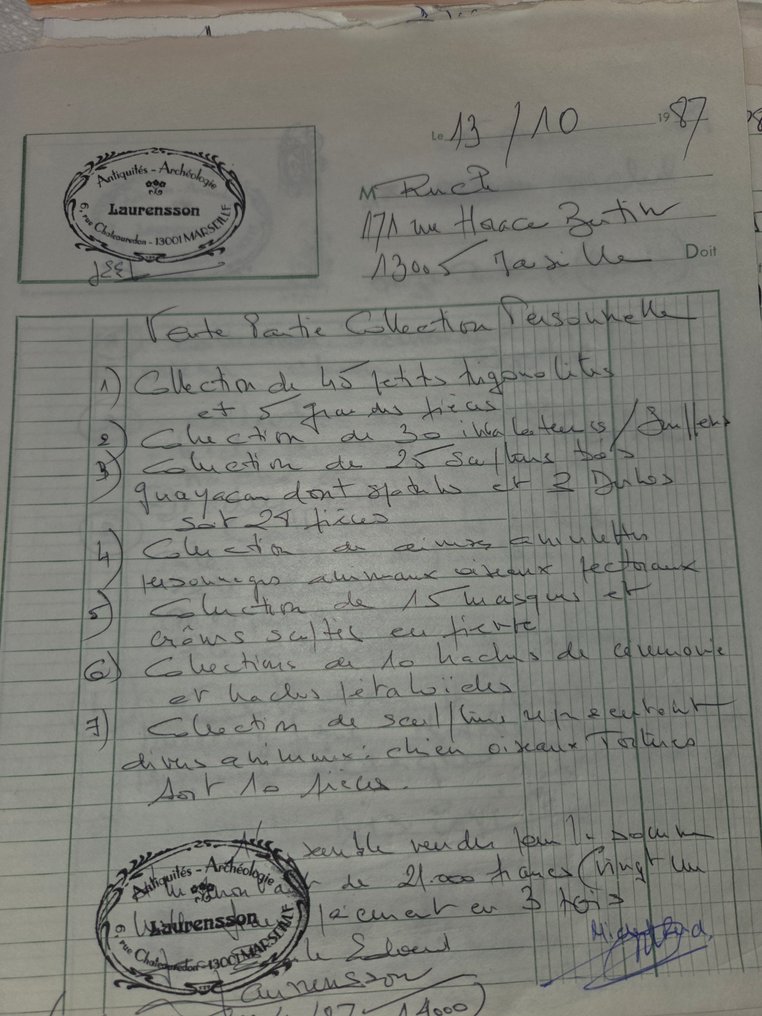 Le 13/10 1987
Antiquités - Archéologie
Laurensson
6, rue Chateauredon - 13001 MARSEILLE
M
171 rue Horace Bertin
13005 Marseille Doit
Vente Partie Collection Personnelle
1) Collection de 45 petits trigonolites
et 5 grandes pièces
2) Collection de 30 inhalateurs /
3) Collection de 25 bois
guayacan dont et
soit 28 pièces
4) Collection de amulettes
personnages animaux oiseaux pectoraux
5) Collection de 15 masques et
crânes en pierre
6) Collections de 10 haches de ceremonie
et haches petaloïdes
7) Collection de representent
divers animaux: chien oiseaux Tortues
soit 10 pièces.
pour la somme
de 21.000 francs (vingt un
en 3 fois
Antiquités - Archéologie
Laurensson
6, rue Chateauredon - 13001 MARSEILLE
le
Laurensson
14000)